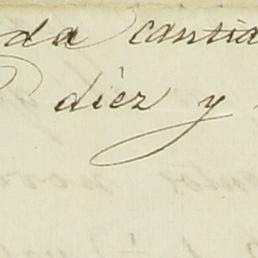 da cantia
diez y